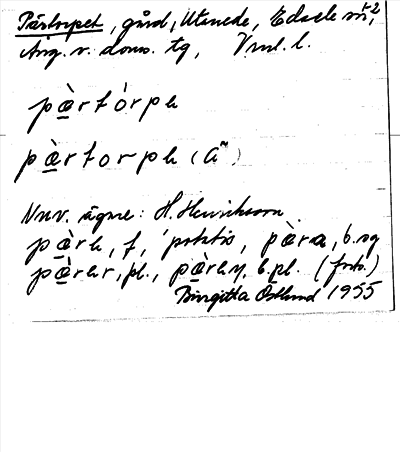 Pärtorpet, gård, Utanede, Edsele sn,
Ång. v. doms. tg, Vnl. l.
pæ̀rtórpe
pæ̀rtorpe (ä)
Nuv. ägare: H. Henriksson.
pæ̀re, f, 'potatis, pæ̀ra, b. sg
pæ̀rer, pl., pæ̀ren, b. pl. (forts.)
Birgitta Östlund 1955